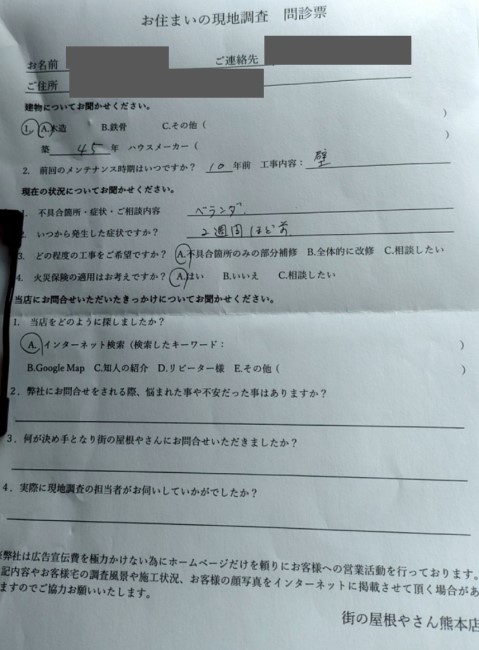 お住まいの現地調査　問診票
お名前　ご連絡先
ご住所
建物についてお聞かせください。
1. A.木造　B.鉄骨　C.その他（　）
築 45 年　ハウスメーカー（　）
2. 前回のメンテナンス時期はいつですか？ 10 年前　工事内容： 壁
現在の状況についてお聞かせください。
1. 不具合箇所・症状・ご相談内容　ベランダ
いつから発生した症状ですか？　2週間ほど前
3. どの程度の工事をご希望ですか？　A.不具合箇所のみの部分補修　B.全体的に改修　C.相談したい
4. 火災保険の適用はお考えですか？　A.はい　B.いいえ　C.相談したい
当店にお問合せいただいたきっかけについてお聞かせください。
1. 当店をどのように探しましたか？
A. インターネット検索（検索したキーワード：　）
B.Google Map　C.知人の紹介　D.リピーター様　E.その他（　）
2. 弊社にお問合せをされる際、悩まれた事や不安だった事はありますか？
3. 何が決め手となり街の屋根やさんにお問合せいただきましたか？
4. 実際に現地調査の担当者がお伺いしていかがでしたか？
弊社は広告宣伝費を極力かけない為にホームページだけを頼りにお客様への営業活動を行っております。
記内容やお客様宅の調査風景や施工状況、お客様の顔写真をインターネットに掲載させて頂く場合があ
ますのでご協力お願いいたします。
街の屋根やさん熊本店